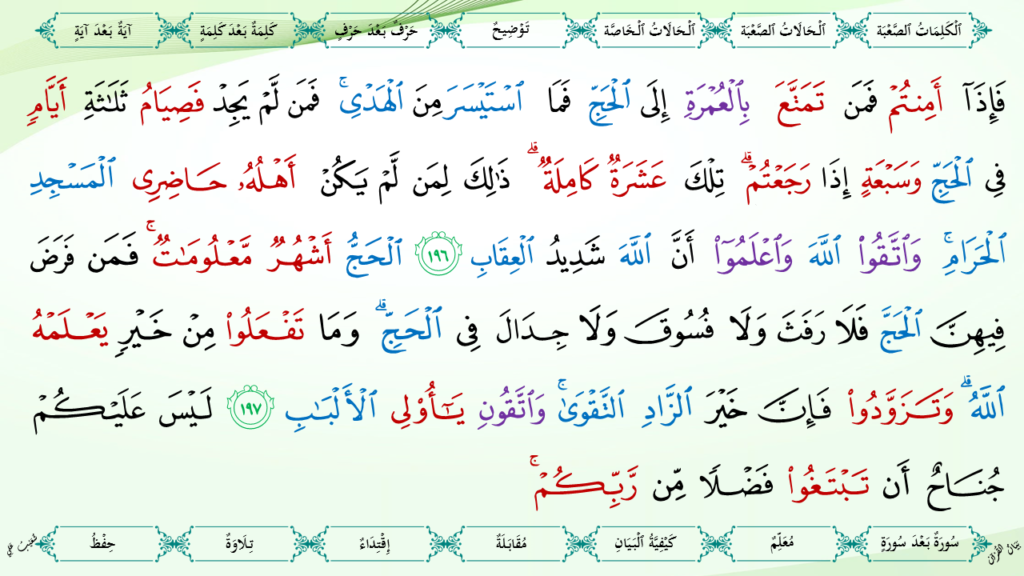 اَلْكَلِمَاتُ الصَّعْبَة اَلْحَالَاتُ الصَّعْبَة اَلْحَالَاتُ الْخَاصَّة تَوْضِيحٌ حَرْفٌ بَعْدَ حَرْفٍ كَلِمَةٌ بَعْدَ كَلِمَةٍ آيَةٌ بَعْدَ آيَةٍ
فَإِذَآ أَمِنتُمْ فَمَن تَمَتَّعَ بِٱلْعُمْرَةِ إِلَى ٱلْحَجِّ فَمَا ٱسْتَيْسَرَ مِنَ ٱلْهَدْىِ ۚ فَمَن لَّمْ يَجِدْ فَصِيَامُ ثَلَـٰثَةِ أَيَّامٍ
فِى ٱلْحَجِّ وَسَبْعَةٍ إِذَا رَجَعْتُمْ ۗ تِلْكَ عَشَرَةٌ كَامِلَةٌ ۗ ذَٰلِكَ لِمَن لَّمْ يَكُنْ أَهْلُهُۥ حَاضِرِى ٱلْمَسْجِدِ
ٱلْحَرَامِ ۚ وَٱتَّقُوا۟ ٱللَّهَ وَٱعْلَمُوٓا۟ أَنَّ ٱللَّهَ شَدِيدُ ٱلْعِقَابِ ١٩٦ ٱلْحَجُّ أَشْهُرٌ مَّعْلُومَـٰتٌ ۚ فَمَن فَرَضَ
فِيهِنَّ ٱلْحَجَّ فَلَا رَفَثَ وَلَا فُسُوقَ وَلَا جِدَالَ فِى ٱلْحَجِّ ۗ وَمَا تَفْعَلُوا۟ مِنْ خَيْرٍ يَعْلَمْهُ
ٱللَّهُ ۗ وَتَزَوَّدُوا۟ فَإِنَّ خَيْرَ ٱلزَّادِ ٱلتَّقْوَىٰ ۚ وَٱتَّقُونِ يَـٰٓأُو۟لِى ٱلْأَلْبَـٰبِ ١٩٧ لَيْسَ عَلَيْكُمْ
جُنَاحٌ أَن تَبْتَغُوا۟ فَضْلًا مِّن رَّبِّكُمْ ۚ
سُورَةٌ بَعْدَ سُورَةٍ مُعَلِّمٌ كَيْفِيَّةُ الْبَيَانِ مُقَابَلَةٌ إِقْتِدَاءٌ تِلَاوَةٌ حِفْظٌ